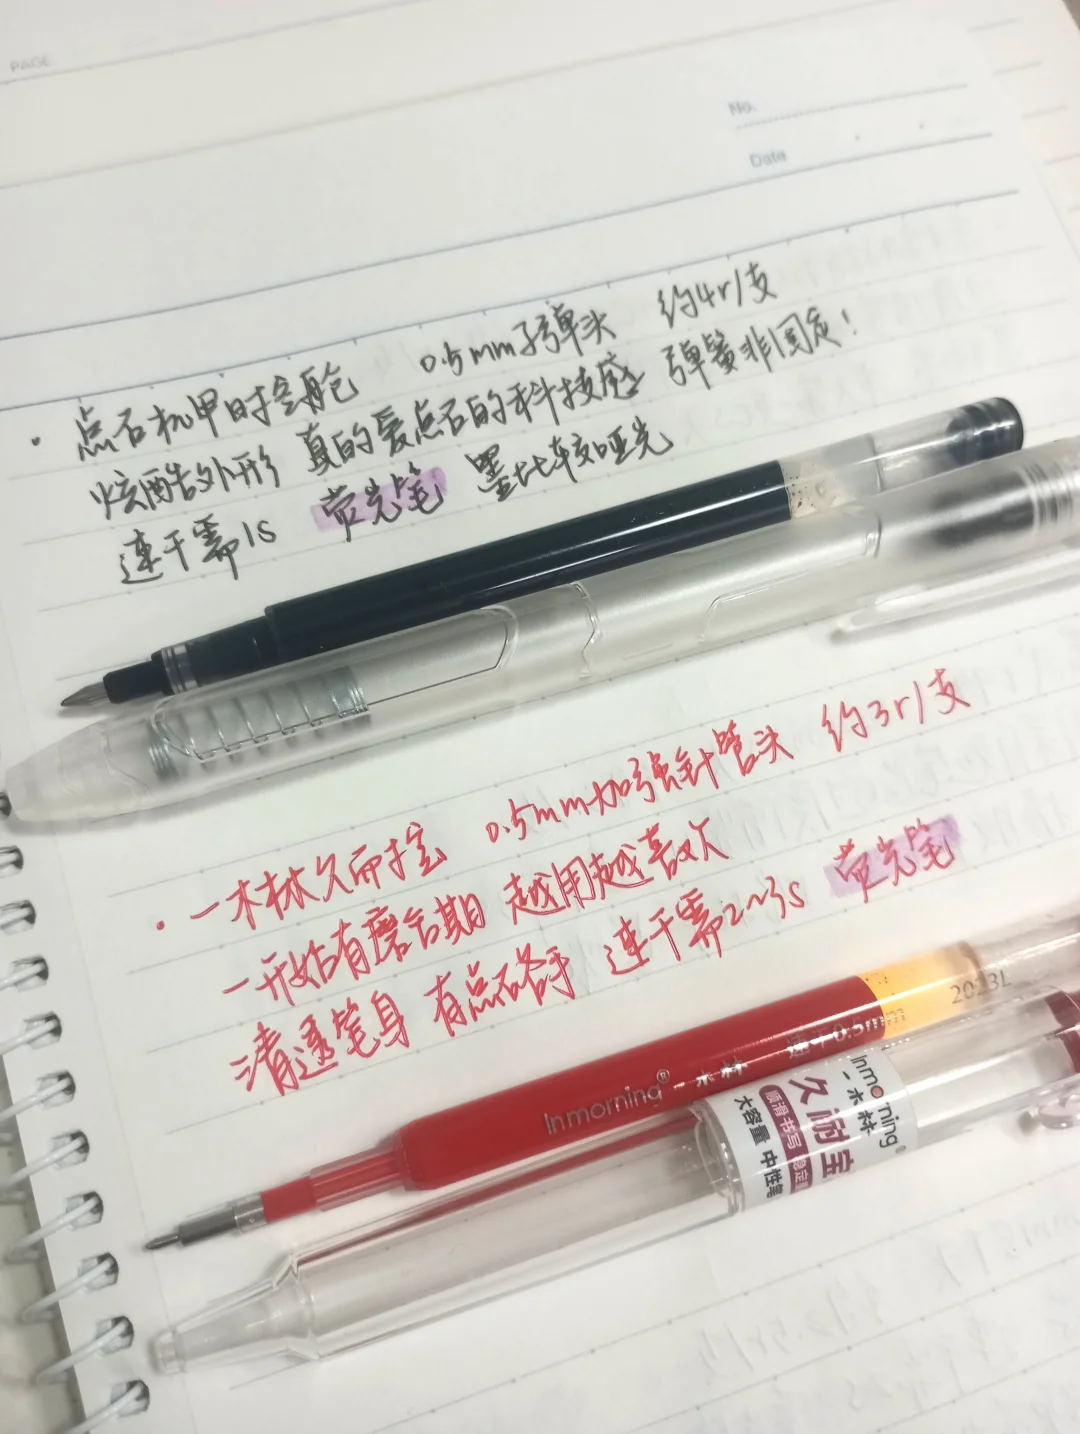 PAGE
No.
Date
· 点石机甲时空舱 0.5mm子弹头 约4r/支
炫酷外形 真的爱点石的科技感 弹簧非固定!
速干需1s 荧光笔 墨比较哑光
· 一木林久耐宝 0.5mm加强针管头 约3r/支
一开始有磨合期 越用越喜欢
清透笔身 有点硌手 速干需2~3s 荧光笔
Inmorning® 一木林 0.5mm
2023L
Inmorning
一木林
久耐宝
顺滑书写
大容量 中性笔